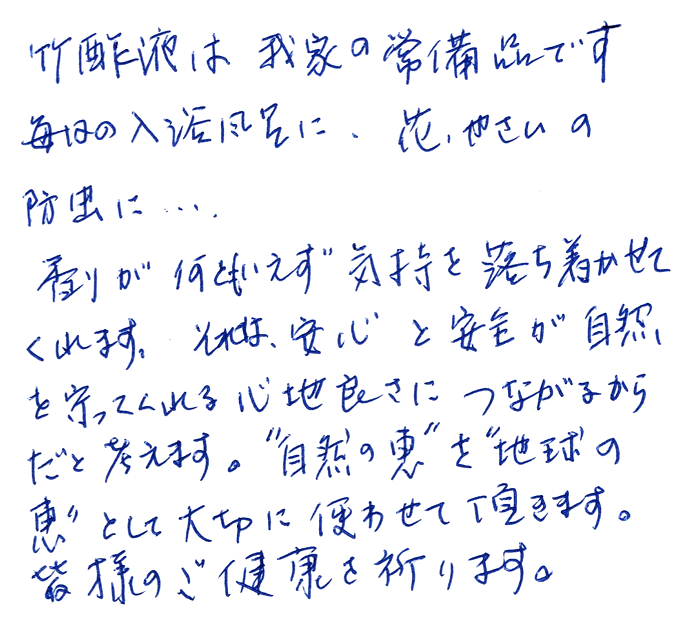 竹酢液は我家の常備品です
毎日の入浴風呂に、花、やさいの
防虫に・・・。
香りが何ともいえず気持を落ち着かせて
くれます。それは、安心と安全が自然
を守ってくれる心地良さにつながるから
だと考えます。“自然の恵”を“地球の
恵”として大切に使わせて頂きます。
皆様のご健康を祈ります。